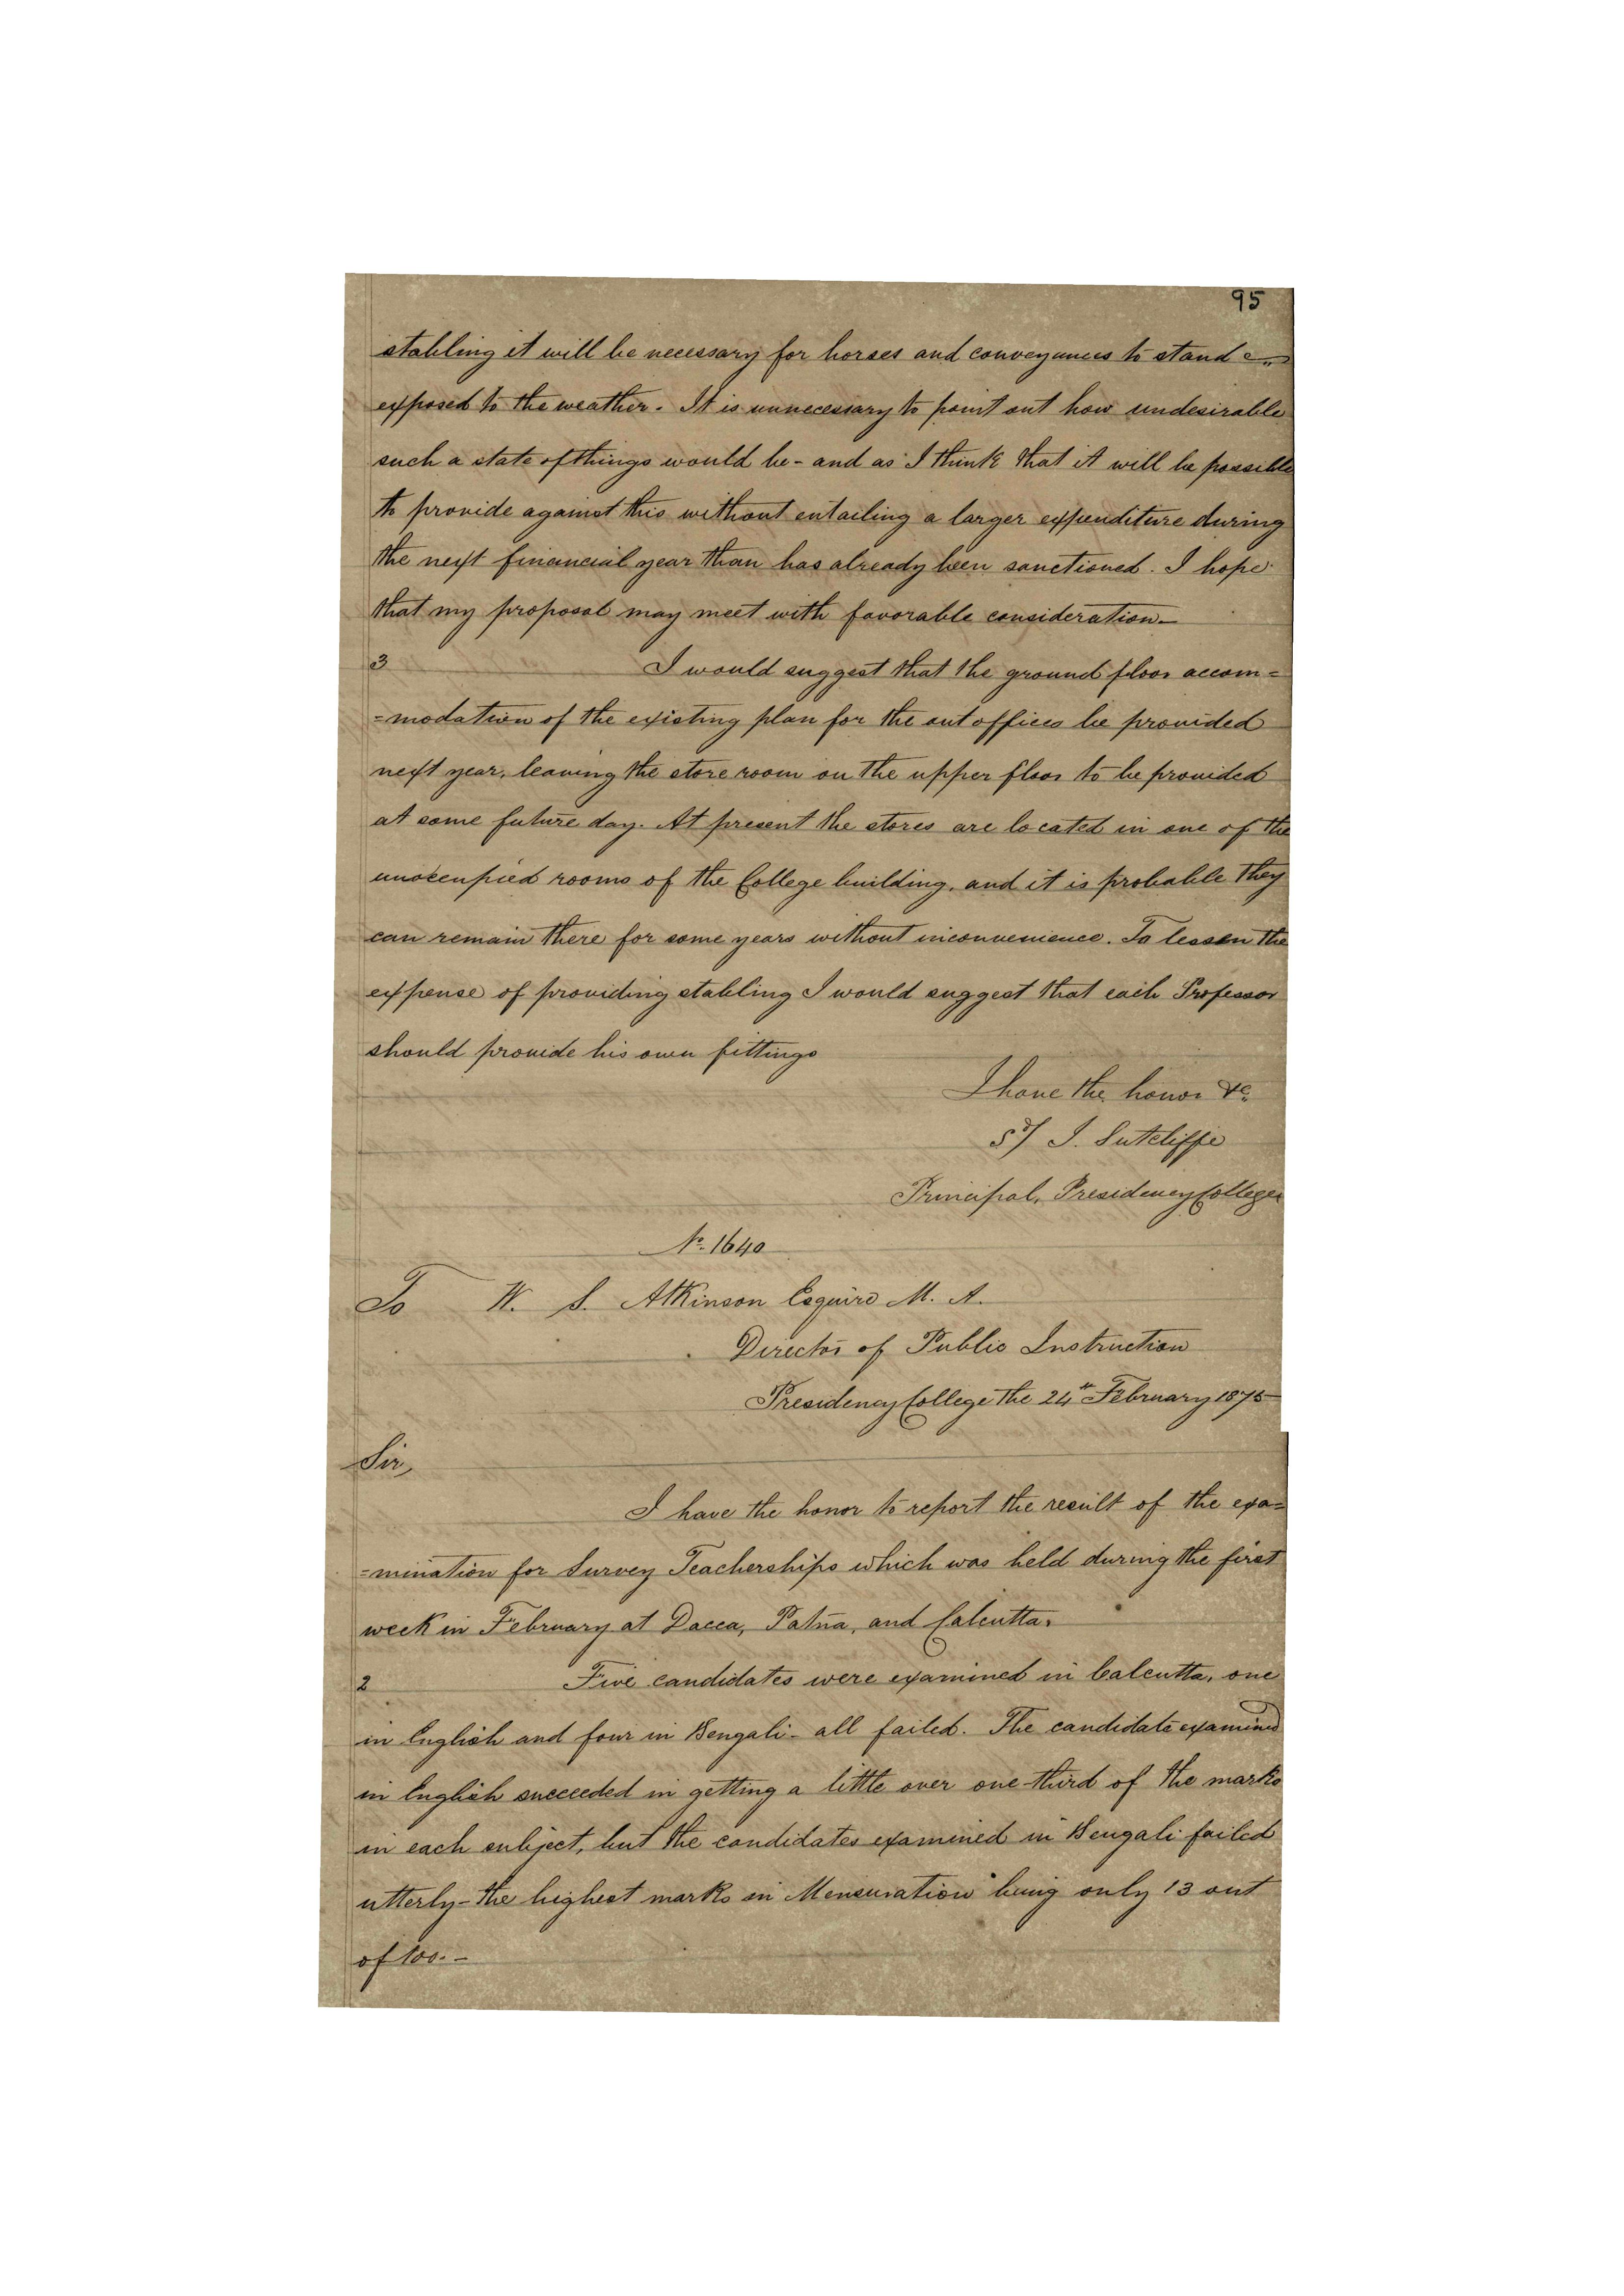 95
stabling it will be necessary for horses and conveyances to stand
exposed to the weather. It is unnecessary to point out how undesirable
such a state of things would be - and as I think that it will be possible
to provide against this without entailing a larger expenditure during
the next financial year than has already been sanctioned. I hope
that my proposal may meet with favorable consideration -
3 I would suggest that the ground floor accom=
=modation of the existing plan for the out offices be provided
next year, leaving the store room on the upper floor to be provided
at some future day. At present the stores are located in one of the
unoccupied rooms of the College building, and it is probable they
can remain there for some years without inconvenience. To lessen the
expense of providing stabling I would suggest that each Professor
should provide his own fittings
I have the honor &c.
Sd/ J. Sutcliffe
Principal, Presidency College
No. 1640
To W. S. Atkinson Esquire M. A.
Director of Public Instruction
Presidency College The 24th February 1875
Sir,
I have the honor to report the result of the exa=
=mination for Survey Teacherships which was held during the first
week in February at Dacca, Patna, and Calcutta.
2 Five candidates were examined in Calcutta, one
in English and four in Bengali - all failed. The candidate examined
in English succeeded in getting a little over one-third of the marks
in each subject, but the candidates examined in Bengali failed
utterly - the highest marks in Mensuration being only 13 out
of 100. -